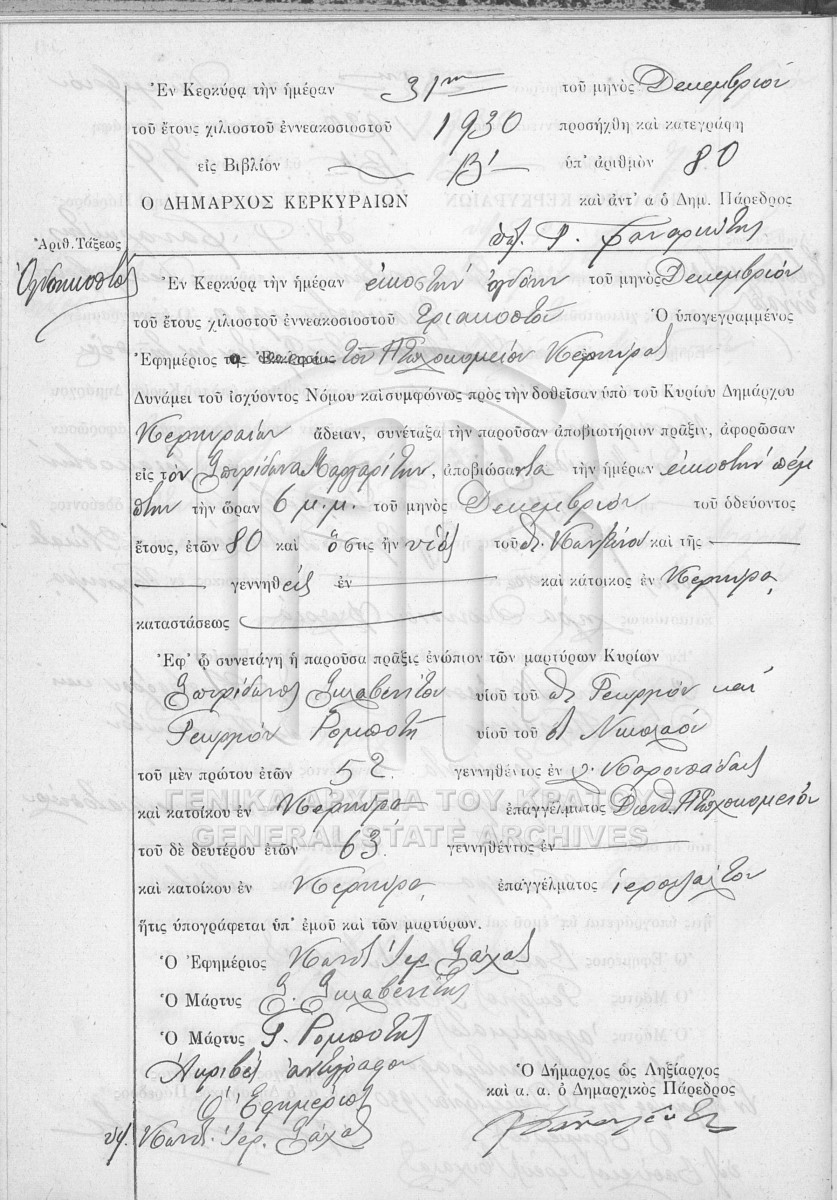 Ἐν Κερκύρᾳ τὴν ἡμέραν 31ην τοῦ μηνὸς Δεκεμβρίου
τοῦ ἔτους χιλιοστοῦ ἐννεακοσιοστοῦ 1930 προσήχθη καὶ κατεγράφη
εἰς Βιβλίον Β' ὑπ' ἀριθμὸν 80
Ο ΔΗΜΑΡΧΟΣ ΚΕΡΚΥΡΑΙΩΝ καὶ ἀντ' α ὁ Δημ. Πάρεδρος
Ἀριθ. Τάξεως
Ὀγδοηκοστὸς
Ἐν Κερκύρᾳ τὴν ἡμέραν εἰκοστὴν ὀγδόην τοῦ μηνὸς Δεκεμβρίου
τοῦ ἔτους χιλιοστοῦ ἐννεακοσιοστοῦ τριακοστοῦ Ὁ ὑπογεγραμμένος
Ἐφημέριος τοῦ Πτωχοκομείου Κερκύρας
Δυνάμει τοῦ ἰσχύοντος Νόμου καὶ συμφώνως πρὸς τὴν δοθεῖσαν ὑπὸ τοῦ Κυρίου Δημάρχου
Κερκυραίων ἄδειαν, συνέταξα τὴν παροῦσαν ἀποβιωτήριον πρᾶξιν, ἀφορῶσαν
εἰς τὸν Σπυρίδωνα Μαργαρίτην, ἀποβιώσαντα τὴν ἡμέραν εἰκοστὴν πέμ
πτην τὴν ὥραν 6 μ.μ. τοῦ μηνὸς Δεκεμβρίου τοῦ ὁδεύοντος
ἔτους, ἐτῶν 80 καὶ ὅστις ἦν υἱὸς τοῦ καὶ τῆς
γεννηθεὶς ἐν καὶ κάτοικος ἐν Κερκύρᾳ
καταστάσεως
Ἐφ' ᾧ συνετάγη ἡ παροῦσα πρᾶξις ἐνώπιον τῶν μαρτύρων Κυρίων
Σπυρίδωνος Σκλαβενίτου υἱοῦ τοῦ Γεωργίου καὶ
Γεωργίου Ρομπότη υἱοῦ τοῦ Νικολάου
τοῦ μὲν πρώτου ἐτῶν 52 γεννηθέντος ἐν
ΓΕΝΙΚΑ ΑΡΧΕΙΑ ΤΟΥ ΚΡΑΤΟΥΣ
καὶ κατοίκου ἐν Κερκύρᾳ ἐπαγγέλματος Πτωχοκομείου
GENERAL STATE ARCHIVES
τοῦ δὲ δευτέρου ἐτῶν 63 γεννηθέντος ἐν
καὶ κατοίκου ἐν Κερκύρᾳ ἐπαγγέλματος ἱεροψάλτου
ἥτις ὑπογράφεται ὑπ' ἐμοῦ καὶ τῶν μαρτύρων.
Ὁ Ἐφημέριος Κωνστ Ἱερ.
Ὁ Μάρτυς Σ. Σκλαβενίτης
Ὁ Μάρτυς Γ. Ρομπότης
Ἀκριβὲς ἀντίγραφον
Ὁ Ἐφημέριος
Ὁ Δήμαρχος ὡς Ληξίαρχος
καὶ α. α. ὁ Δημαρχικὸς Πάρεδρος